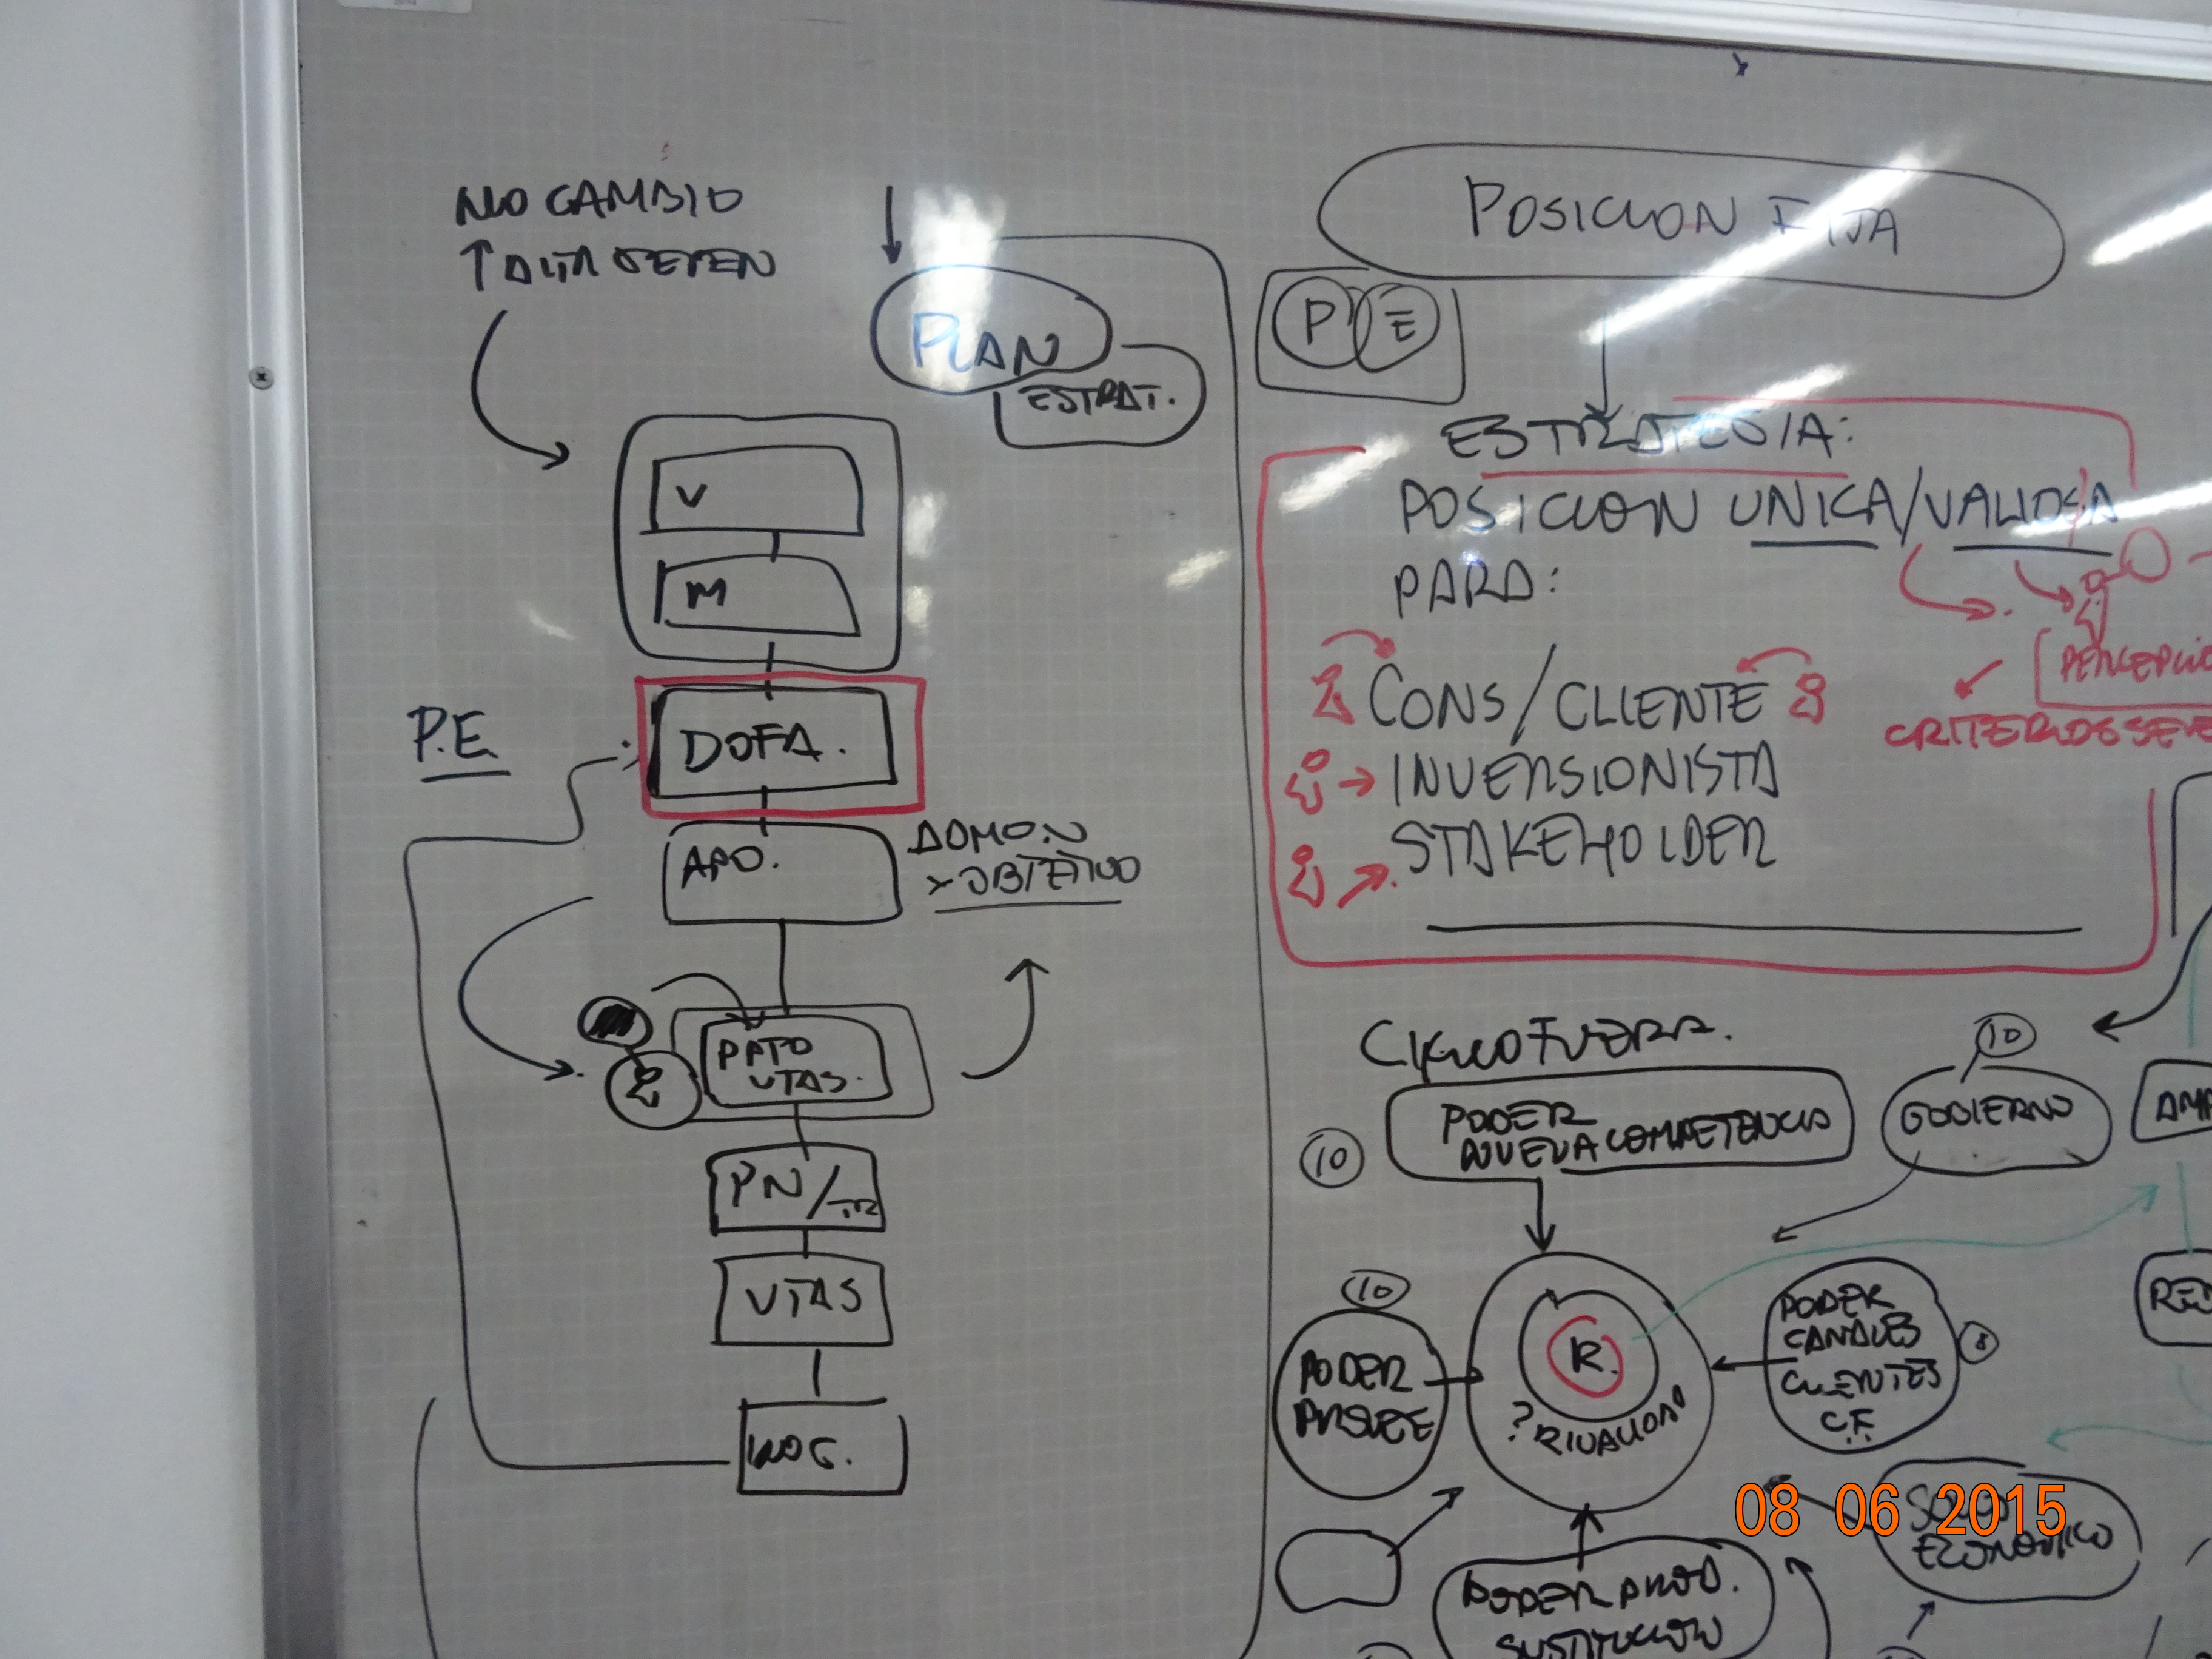 NO CAMBIO
↑ ALTA GEREN
PLAN
ESTRAT.
V
M
P.E.
DOFA.
APO.
ADMON
X OBJETIVO
PPTO
VTAS.
PN/
VTAS
POSICION FIJA
P E
ESTRATEGIA:
POSICION UNICA/VALIOSA
PARA:
CONS/CLIENTE
INVERSIONISTA
STAKEHOLDER
CRITERIOS
FUERA.
10
PODER
NUEVA COMPETENCIA
10
GOBIERNO
10
PODER
PROVEE
R.
? RIVALIDAD
PODER
CANALES
CLIENTES
C.F.
8
SOCIO
ECONOMICO
PODER PROD.
SUSTITUCION
08 06 2015